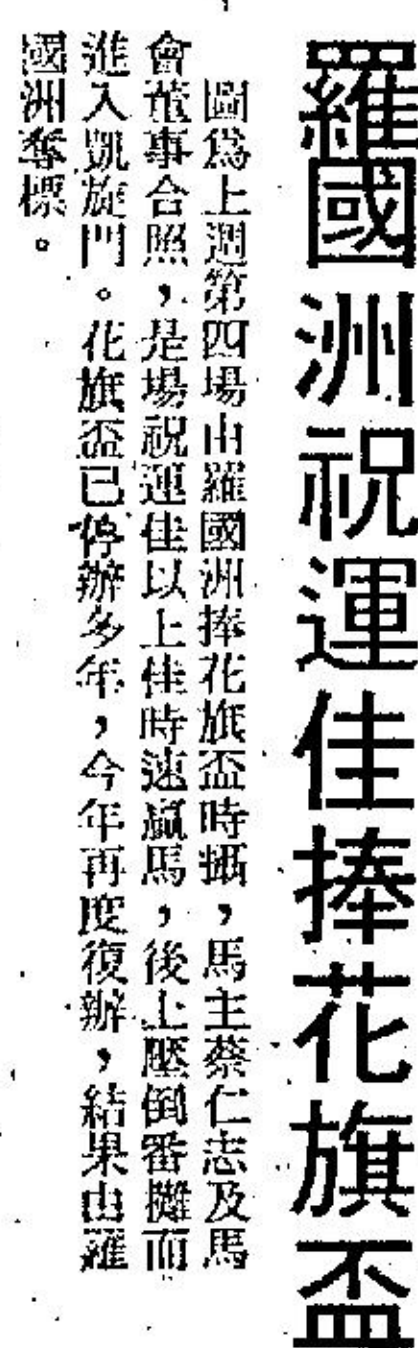 羅國洲祝運佳捧花旗盃
圖爲上週第四場由羅國洲捧花旗盃時攝，馬主蔡仁志及馬
會董事合照，是場祝運佳以上佳時速贏馬，後上壓倒番攤而
進入凱旋門。花旗盃已停辦多年，今年再度復辦，結果由羅
國洲奪標。